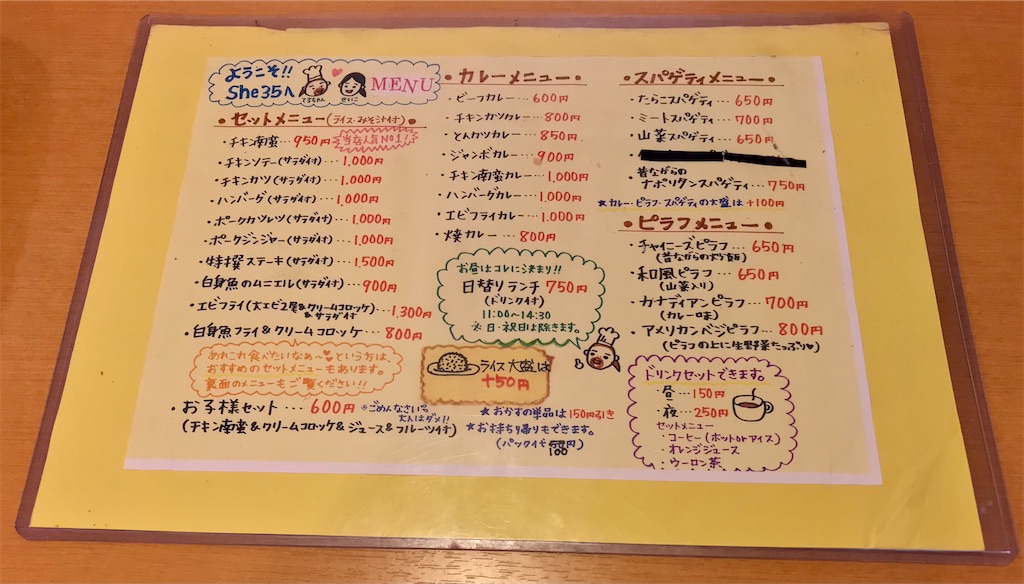 ようこそ!!
She35へ
てるちゃん
せいこ
MENU
・セットメニュー(ライス・みそ汁付)・
・チキン南蛮… 950円 当店人気No1!
・チキンソテー(サラダ付)… 1,000円
・チキンカツ(サラダ付)… 1,000円
・ハンバーグ(サラダ付)… 1,000円
・ポークカツレツ(サラダ付)… 1,000円
・ポークジンジャー(サラダ付)… 1,000円
・特撰ステーキ(サラダ付)… 1,500円
・白身魚のムニエル(サラダ付)… 900円
・エビフライ(大エビ2尾&クリームコロッケ)… 1,300円
&サラダ付
・白身魚フライ&クリームコロッケ… 800円
あれこれ食べたいなあ〜♥という方は、
おすすめのセットメニューもあります。
裏面のメニューもご覧ください!!
・お子様セット… 600円 ※ごめんなさい
大人はダメ!!
(チキン南蛮&クリームコロッケ&ジュース&フルーツ付)
・カレーメニュー・
・ビーフカレー… 600円
・チキンカツカレー… 800円
・とんカツカレー… 850円
・ジャンボカレー… 900円
・チキン南蛮カレー… 1,000円
・ハンバーグカレー… 1,000円
・エビフライカレー… 1,000円
・焼カレー… 800円
お昼はコレに決まり!!
日替りランチ 750円
(ドリンク付)
11:00〜14:30
※日・祝日は除きます。
ライス大盛は
+50円
★おかずの単品は150円引き
★お持ち帰りもできます。
(パック代 100円)
・スパゲティメニュー・
・たらこスパゲティ… 650円
・ミートスパゲティ… 700円
・山菜スパゲティ… 650円
・昔ながらの
ナポリタンスパゲティ… 750円
★カレー・ピラフ・スパゲティの大盛は+100円
・ピラフメニュー・
・チャイニーズピラフ… 650円
(昔ながらの炒飯)
・和風ピラフ… 650円
(山菜入り)
・カナディアンピラフ… 700円
(カレー味)
・アメリカンベジピラフ… 800円
(ピラフの上に生野菜たっぷり♥)
ドリンクセットできます。
・昼…150円
・夜…250円
セットメニュー
・コーヒー(ホットorアイス)
・オレンジジュース
・ウーロン茶